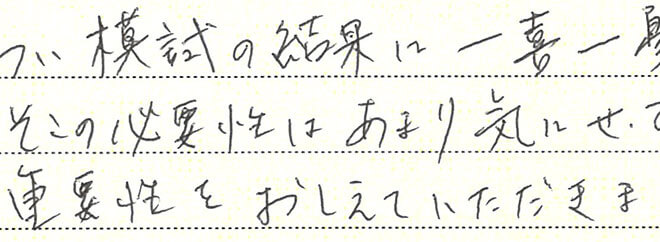 つい模試の結果に一喜一
そこの必要性はあまり気にせ
重要性をおしえていただきま